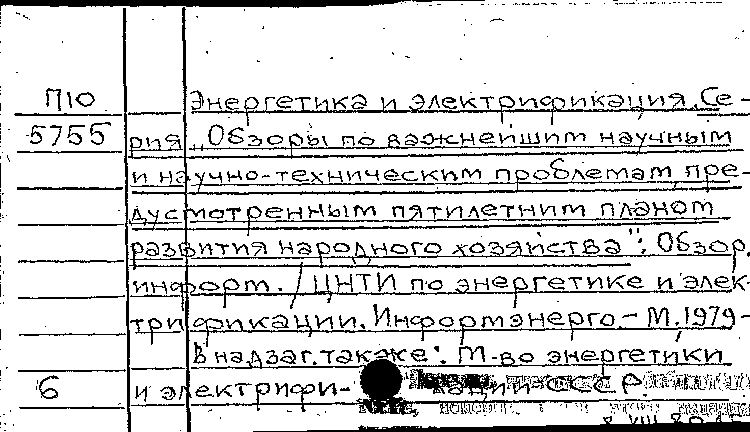 П10 Энергетика и электрификация. Се-
5755 рия „Обзоры по важнейшим научным
и научно-техническим проблемам, пре-
дусмотренным пятилетним планом
развития народного хозяйства": Обзор.
информ. / ЦНТИ по энергетике и элек-
трификации. Информэнерго. - М. 1979-
В надзаг. также: М-во энергетики
6 и электрифи- кации СССР.